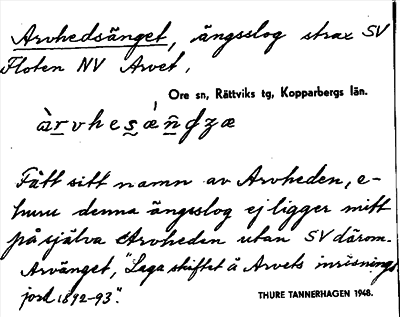 Arvhedsänget, ängsslog strax SV
Floten NV Arvet,
Ore sn, Rättviks tg, Kopparbergs län.
àrvhesæ̀ńdzæ
Fått sitt namn av Arvheden, e-
huru denna ängsslog ej ligger mitt
på själva Arvheden utan SV därom.
Arvänget, "Laga skiftet å Arvets inrösnings
jord 1892-93".
THURE TANNERHAGEN 1948.